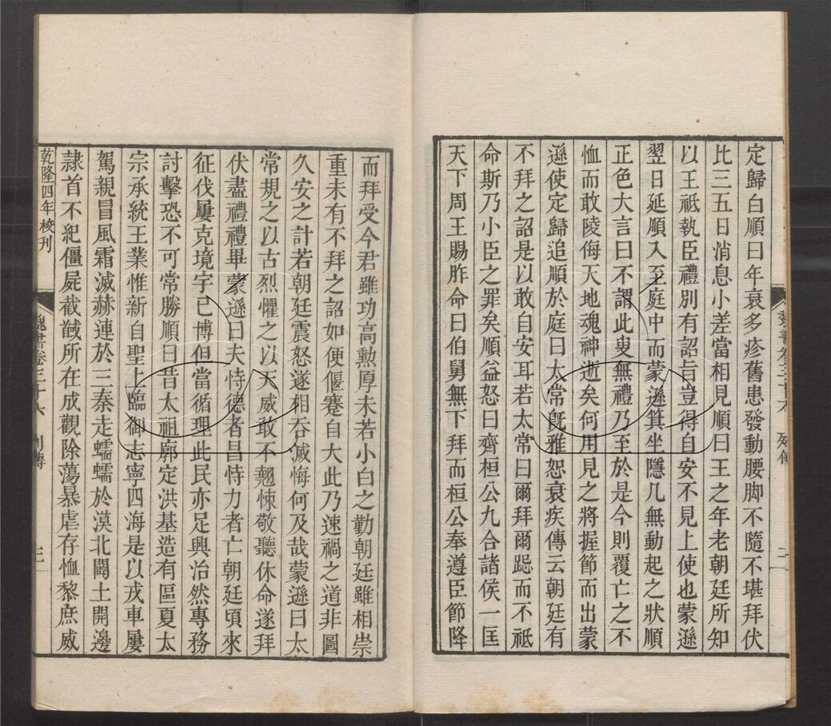 定歸白順曰年衰多疹舊患發動腰脚不隨不堪拜伏
比三五日消息小差當相見順曰王之年老朝廷所知
以王祇執臣禮別有詔旨豈得自安不見上使也蒙遜
翌日延順入至庭中而蒙遜箕坐隱几無動起之狀順
正色大言曰不謂此叟無禮乃至於是今則覆亡之不
恤而敢陵侮天地魂神逝矣何用見之將握節而出蒙
遜使定歸追順於庭曰太常旣雅恕衰疾傳云朝廷有
不拜之詔是以敢自安耳若太常曰爾拜爾跽而不祇
命斯乃小臣之罪矣順益怒曰齊桓公九合諸侯一匡
天下周王賜胙命曰伯舅無下拜而桓公奉遵臣節降
而拜受今君雖功高勲厚未若小白之勤朝廷雖相崇
重未有不拜之詔如便偃蹇自大此乃速禍之道非圖
久安之計若朝廷震怒遂相吞滅悔何及哉蒙遜曰太
常規之以古烈懼之以天威敢不翹悚敬聽休命遂拜
伏盡禮禮畢蒙遜曰夫恃德者昌恃力者亡朝廷頃來
征伐屢克境宇已博但當循理此民亦足興治然專務
討擊恐不可常勝順曰昔太祖廓定洪基造有區夏太
宗承統王業惟新自聖上臨御志寧四海是以戎車屢
駕親冒風霜滅赫連於三秦走蠕蠕於漠北闢土開邊
隷首不紀僵屍截馘所在成觀除蕩暴虐存恤黎庶威
乾隆四年校刊
魏書卷三十六 列傳